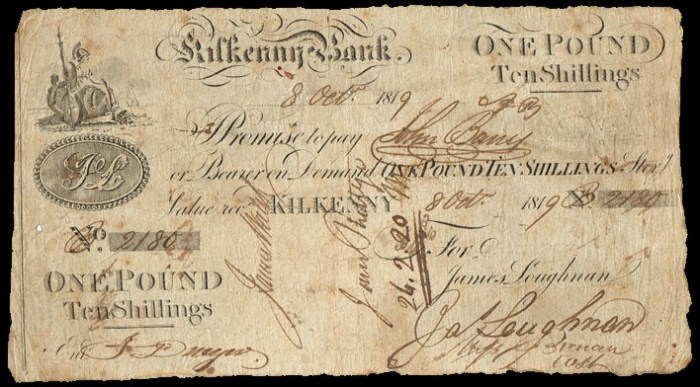 Kilkenny Bank.
ONE POUND
Ten Shillings
8 Oct. 1819
I Promise to pay John Barry
or Bearer on Demand ONE POUND TEN SHILLINGS Ster.g
Value rec.d KILKENNY 8 Oct. 1819 No. 2180
JL
No. 2180
For
James Loughnan
ONE POUND
Ten Shillings
Jas Loughnan
Ent.
James
26.2.20